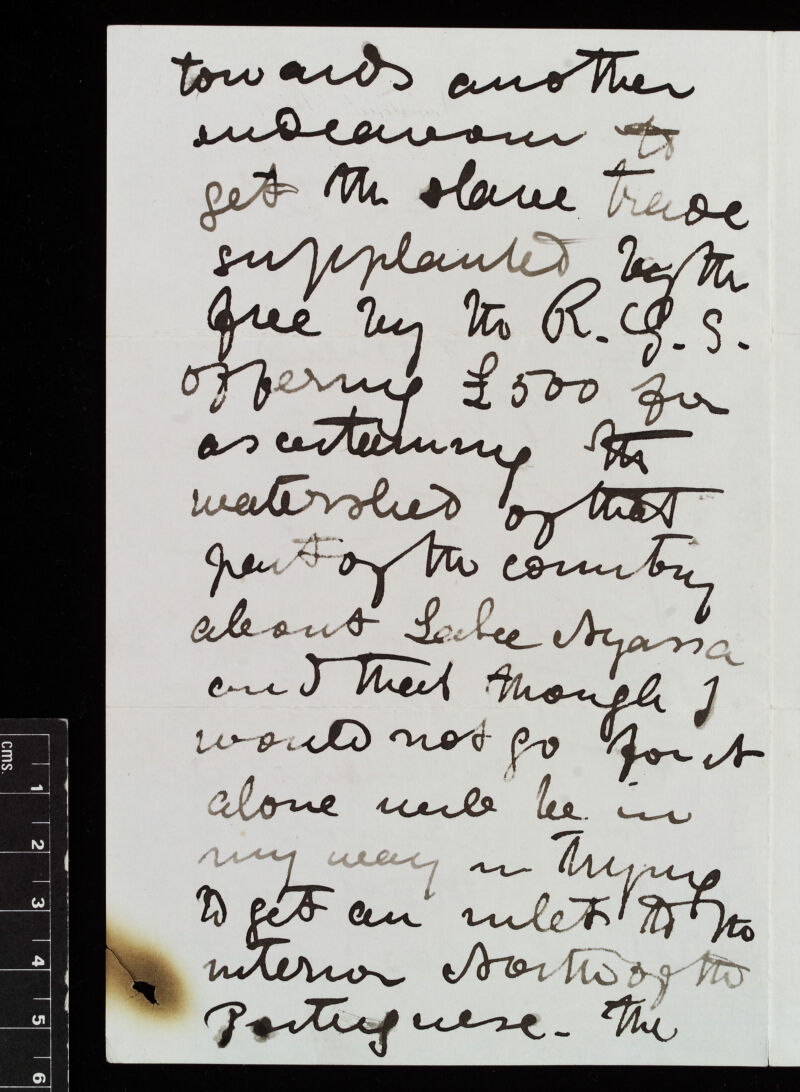 towards another
endeavour to
get the slave trade
supplanted by the
free by the R. G. S.
offering £500 for
ascertaining the
watershed of that
part of the country
about Lake Nyassa
and that though I
would not go for it
alone will be in
my way in trying
to get an inlet to the
interior North of the
Portuguese - The
cms.
1
2
3
4
5
6